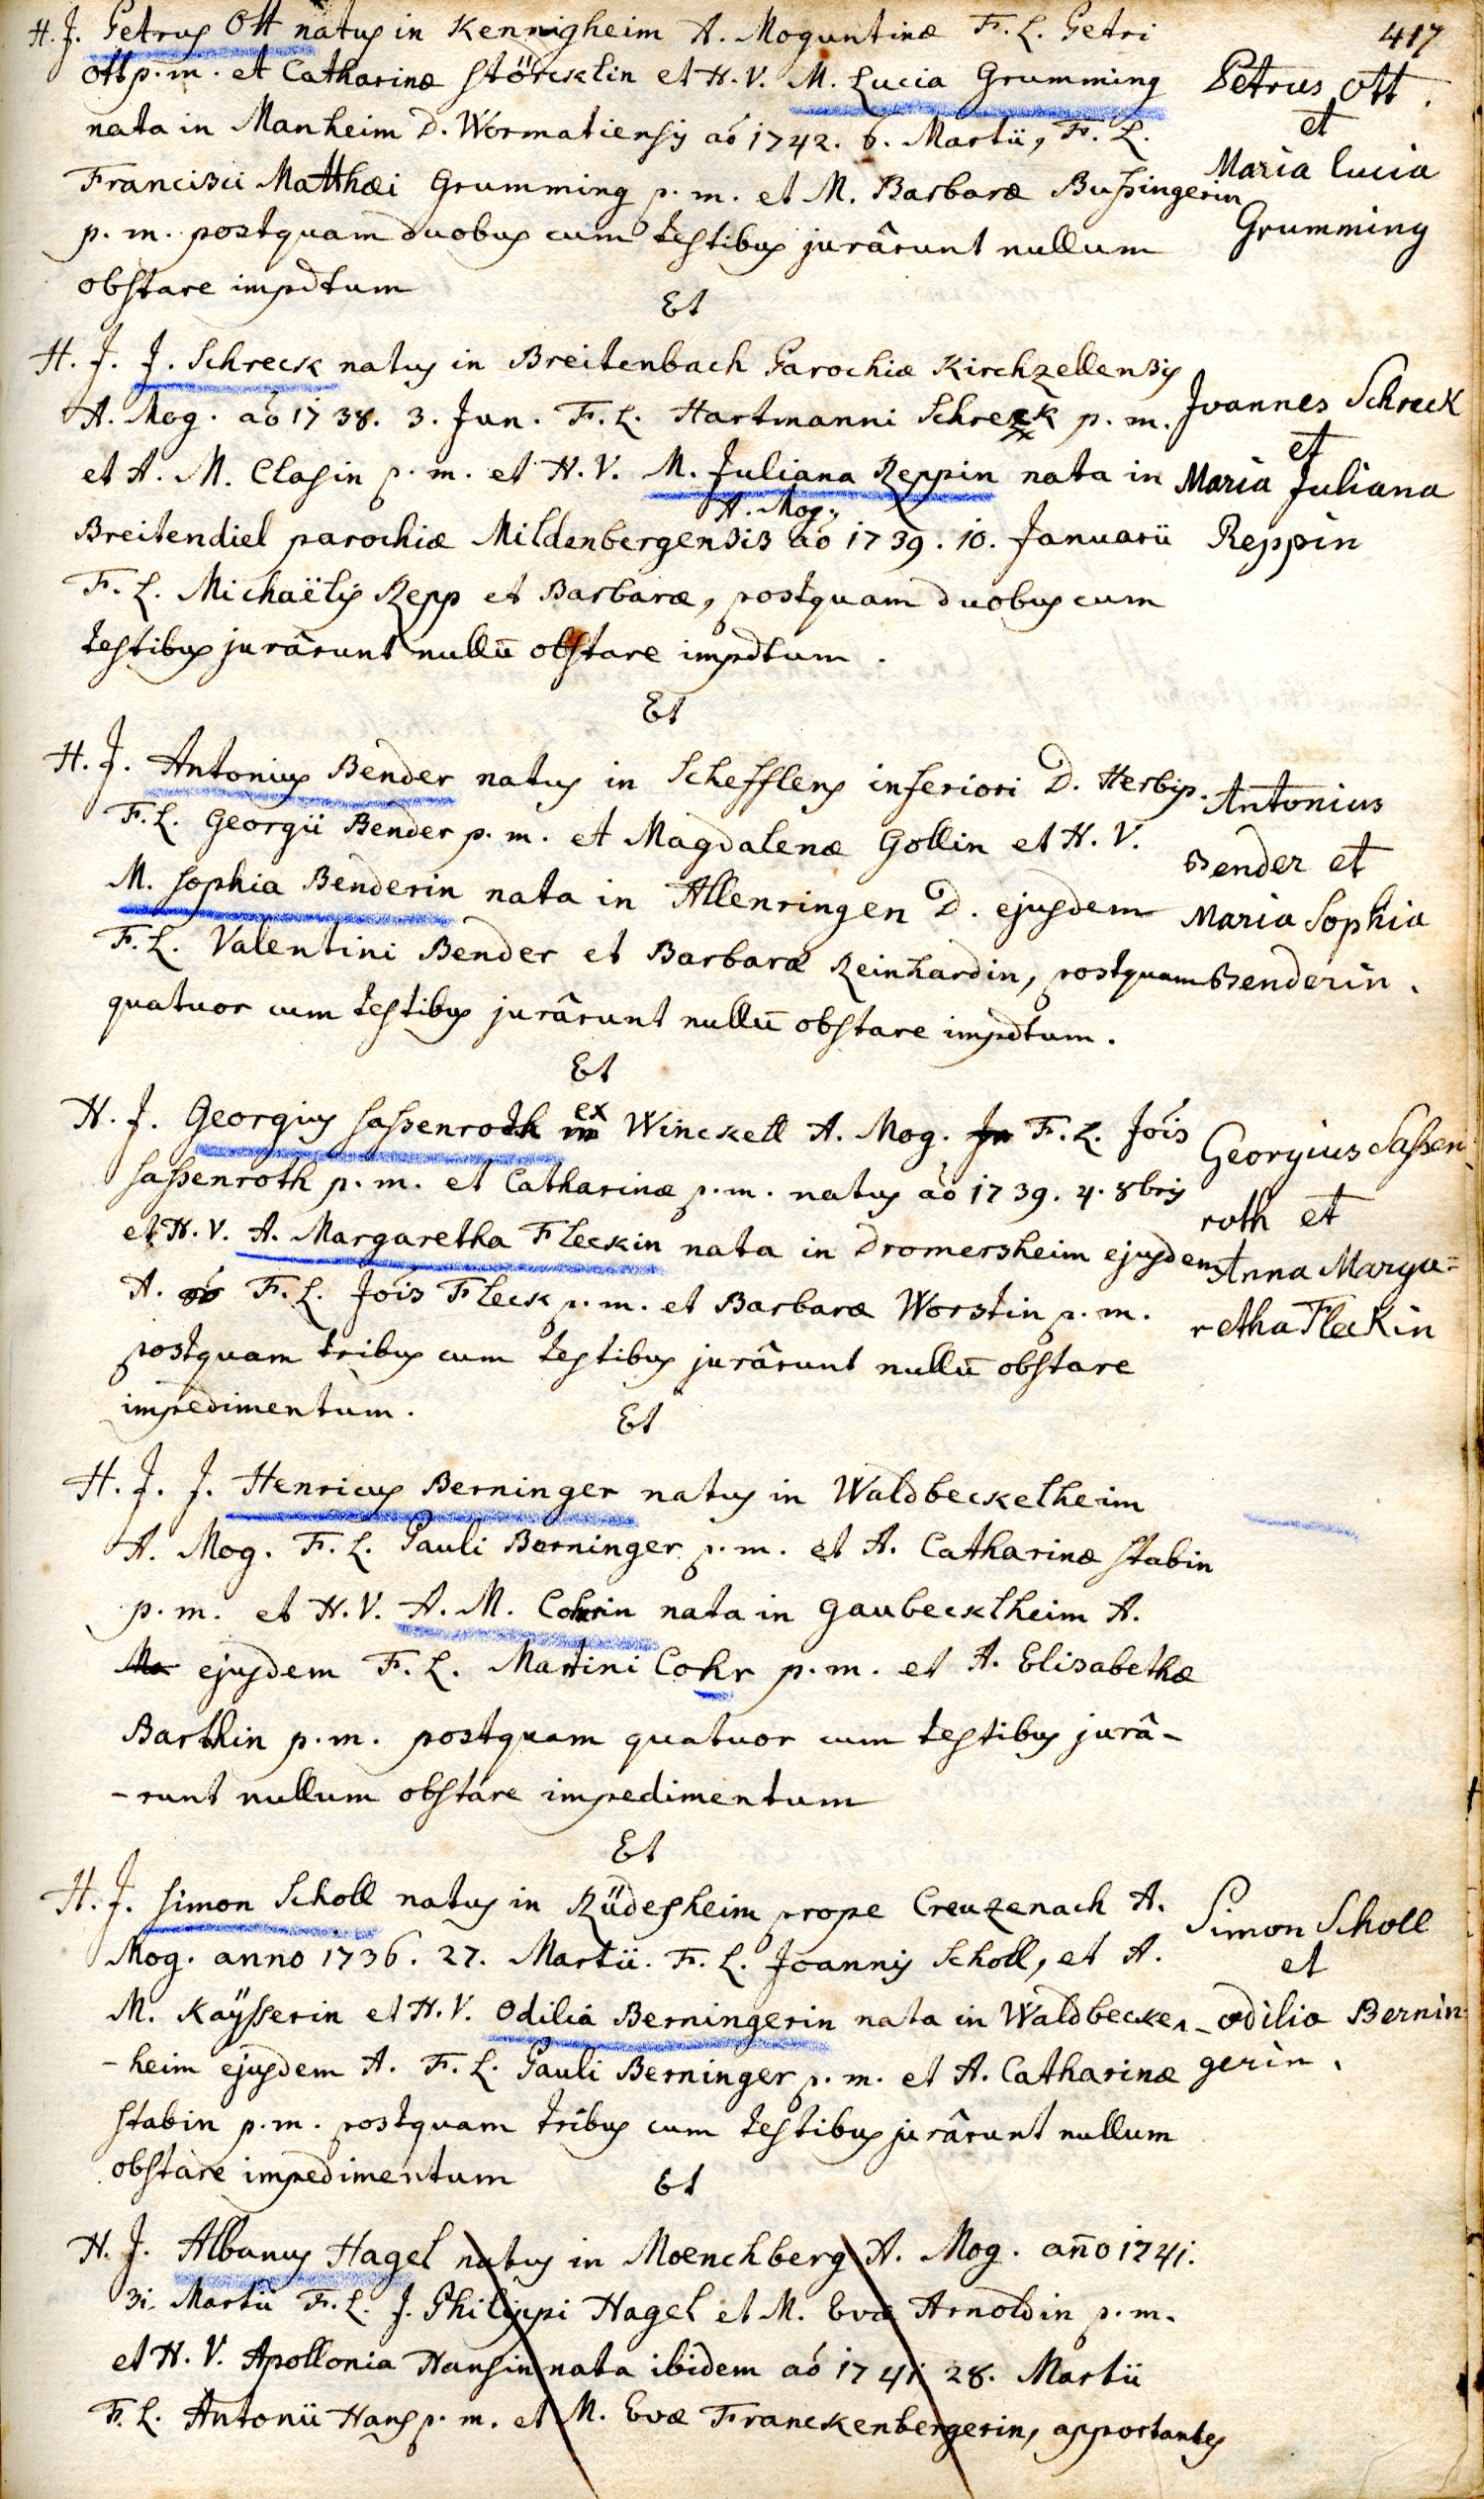 417
H. J. Petrus Ott natus in Kennigheim A. Moguntinæ F. L. Petri
Ott p. m. et Catharinæ Störcklin et H. V. M. Lucia Grumming
nata in Manheim D. Wormatiensis aó 1742. 6. Martii, F. L.
Francisci Matthæi Grumming p. m. et M. Barbaræ Bußingerin
p. m. postquam duobus cum testibus jurârunt nullum
obstare impdtum
Petrus Ott
et
Maria Lucia
Grumming
Et
H. J. J. Schreck natus in Breitenbach Parochiæ Kirchzellensis
A. Mog. aó 1738. 3. Jun. F. L. Hartmanni Schreck p. m.
et A. M. Clasin p. m. et H. V. M. Juliana Reppin nata in
A. Mog.
Breitendiel parochiæ Mildenbergensis aó 1739. 10. Januarii
F. L. Michaëlis Repp et Barbaræ, postquam duobus cum
testibus jurârunt nullū obstare impdtum.
Joannes Schreck
et
Maria Juliana
Reppin
Et
H. J. Antonius Bender natus in Schefflens inferiori D. Herbip.
F. L. Georgii Bender p. m. et Magdalenæ Gollin et H. V.
M. Sophia Benderin nata in Allenringen D. ejusdem
F. L. Valentini Bender et Barbaræ Reinhardin, postquam
quatuor cum testibus jurârunt nullū obstare impdtum.
Antonius
Bender et
Maria Sophia
Benderin.
Et
ex
H. J. Georgius Saßenroth in Winckell A. Mog. Jn F. L. Jóis
Saßenroth p. m. et Catharinæ p. m. natus aó 1739. 4. 8bris
et H. V. A. Margaretha Fleckin nata in Dromersheim ejusdem
A. aó F. L. Jóis Fleck p. m. et Barbaræ Worstin p. m.
postquam tribus cum testibus jurârunt nullū obstare
impedimentum.
Georgius Saßen
roth et
Anna Marga=
retha Fleckin
Et
H. J. J. Henricus Berninger natus in Waldbeckelheim
A. Mog. F. L. Pauli Berninger p. m. et A. Catharinæ Stabin
p. m. et H. V. A. M. Cohrin nata in Gaubecklheim A.
Mo ejusdem F. L. Martini Cohr p. m. et A. Elisabethæ
Barthin p. m. postquam quatuor cum testibus jurâ-
-runt nullum obstare impedimentum
Et
H. J. Simon Scholl natus in Rüdesheim prope Creuzenach A.
Mog. anno 1736. 27. Martii. F. L. Joannis Scholl, et A.
M. Kaÿsserin et H. V. Odilia Berningerin nata in Waldbeckel-
-heim ejusdem A. F. L. Pauli Berninger p. m. et A. Catharinæ
Stabin p. m. postquam tribus cum testibus jurârunt nullum
obstare impedimentum
Simon Scholl
et
Odilia Bernin=
gerin.
Et
H. J. Albanus Hagel natus in Moenchberg A. Mog. año 1741.
31. Martii F. L. J. Philippi Hagel et M. Evæ Arnoldin p. m.
et H. V. Apollonia Hansin nata ibidem aó 1741 28. Martii
F. L. Antonii Hans p. m. et M. Evæ Franckenbergerin, apportantes